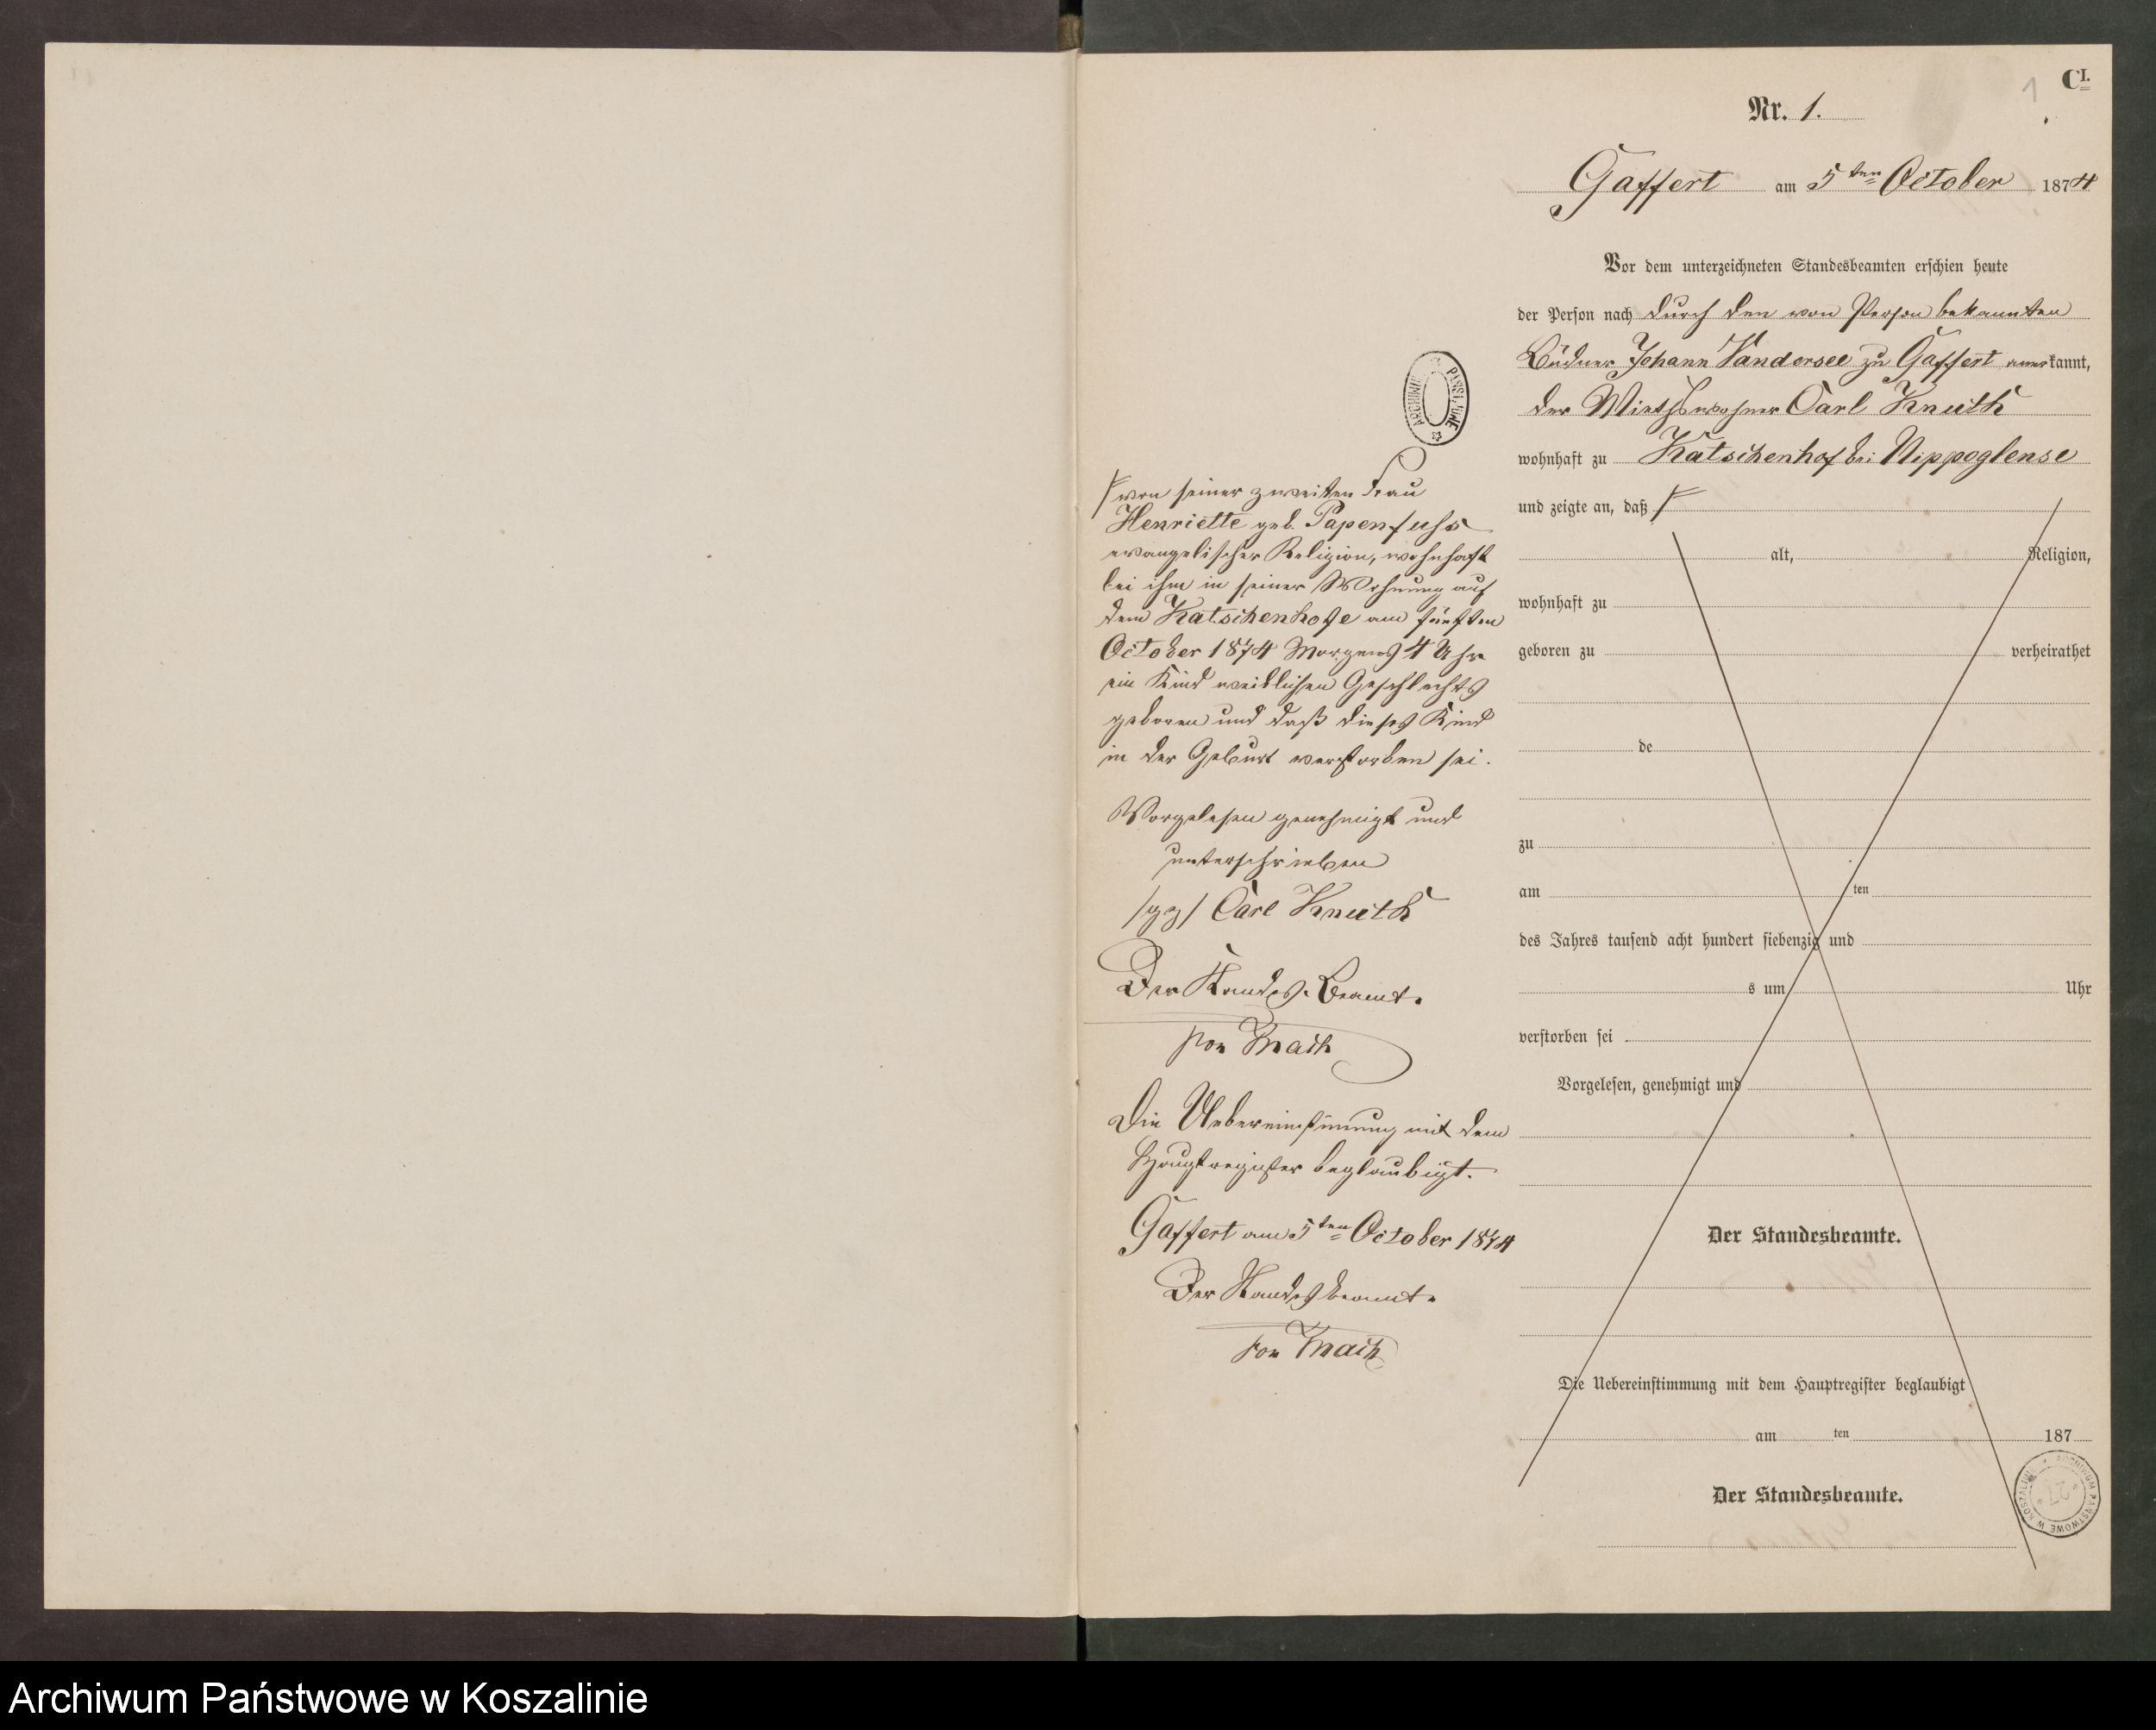 C I.
1
Nr. 1.
Gaffert am 5ten October 1874
Vor dem unterzeichneten Standesbeamten erschien heute
der Person nach durch den von Person bekannten
Büdner Johann Vandersee zu Gaffert anerkannt,
der Miethswohner Carl Knuth
wohnhaft zu Katschenhof bei Nippoglense
und zeigte an, daß
alt, Religion,
wohnhaft zu
geboren zu verheirathet
de
zu
am ten
des Jahres tausend acht hundert siebenzig und
s um Uhr
verstorben sei
Vorgelesen, genehmigt und
Der Standesbeamte.
Die Uebereinstimmung mit dem Hauptregister beglaubigt
am ten 187
Der Standesbeamte.
von seiner zweiten Frau
Henriette geb. Papenfuhs
evangelischer Religion, wohnhaft
bei ihm in seiner Wohnung auf
dem Katschenhofe am fünften
October 1874 Morgens 4 Uhr
ein Kind weiblichen Geschlechts
geboren und daß dieses Kind
in der Geburt verstorben sei.
Vorgelesen genehmigt und
unterschrieben
/gz/ Carl Knuth
Der Standes-Beamte
von Mach
Die Uebereinstimmung mit dem
Hauptregister beglaubigt.
Gaffert am 5ten October 1874
Der Standesbeamte
von Mach
ARCHIWUM PAŃSTWOWE W KOSZALINIE
27
Archiwum Państwowe w Koszalinie